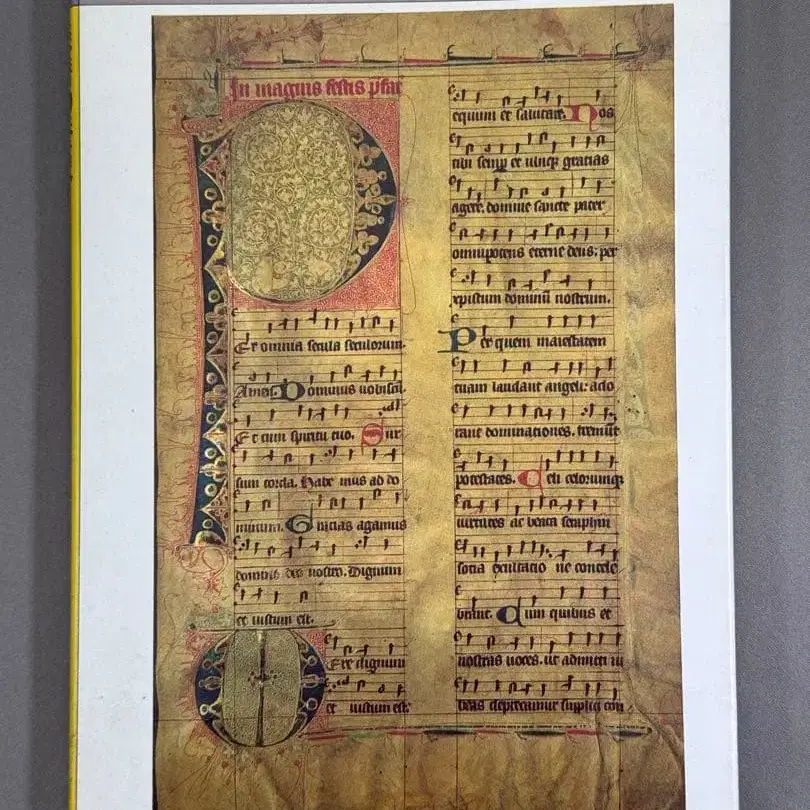 In magnis festis pfac
Er omnia secula seculorum.
Amen. Dominus vobiscū.
Et cum spiritu tuo. Sur
sum corda. Habe mus ad do
minum. Gracias agamus
domino deo nostro. Dignum
et iustum est.
Ere dignum
et iustum est.
equum et salutare. Nos
tibi semp et ubiq gracias
agere. domine sancte pater
omnipotens eterne deus. per
xpistum dominū nostrum.
Per quem maiestatem
tuam laudant angeli. ado
rant dominationes. tremūt
potestates. Celi celorumq
uirtutes ac beata seraphin
socia exultacio ne concele
brant. Cum quibus et
nostras uoces. ut admitti iu
beas deprecamur supplici con